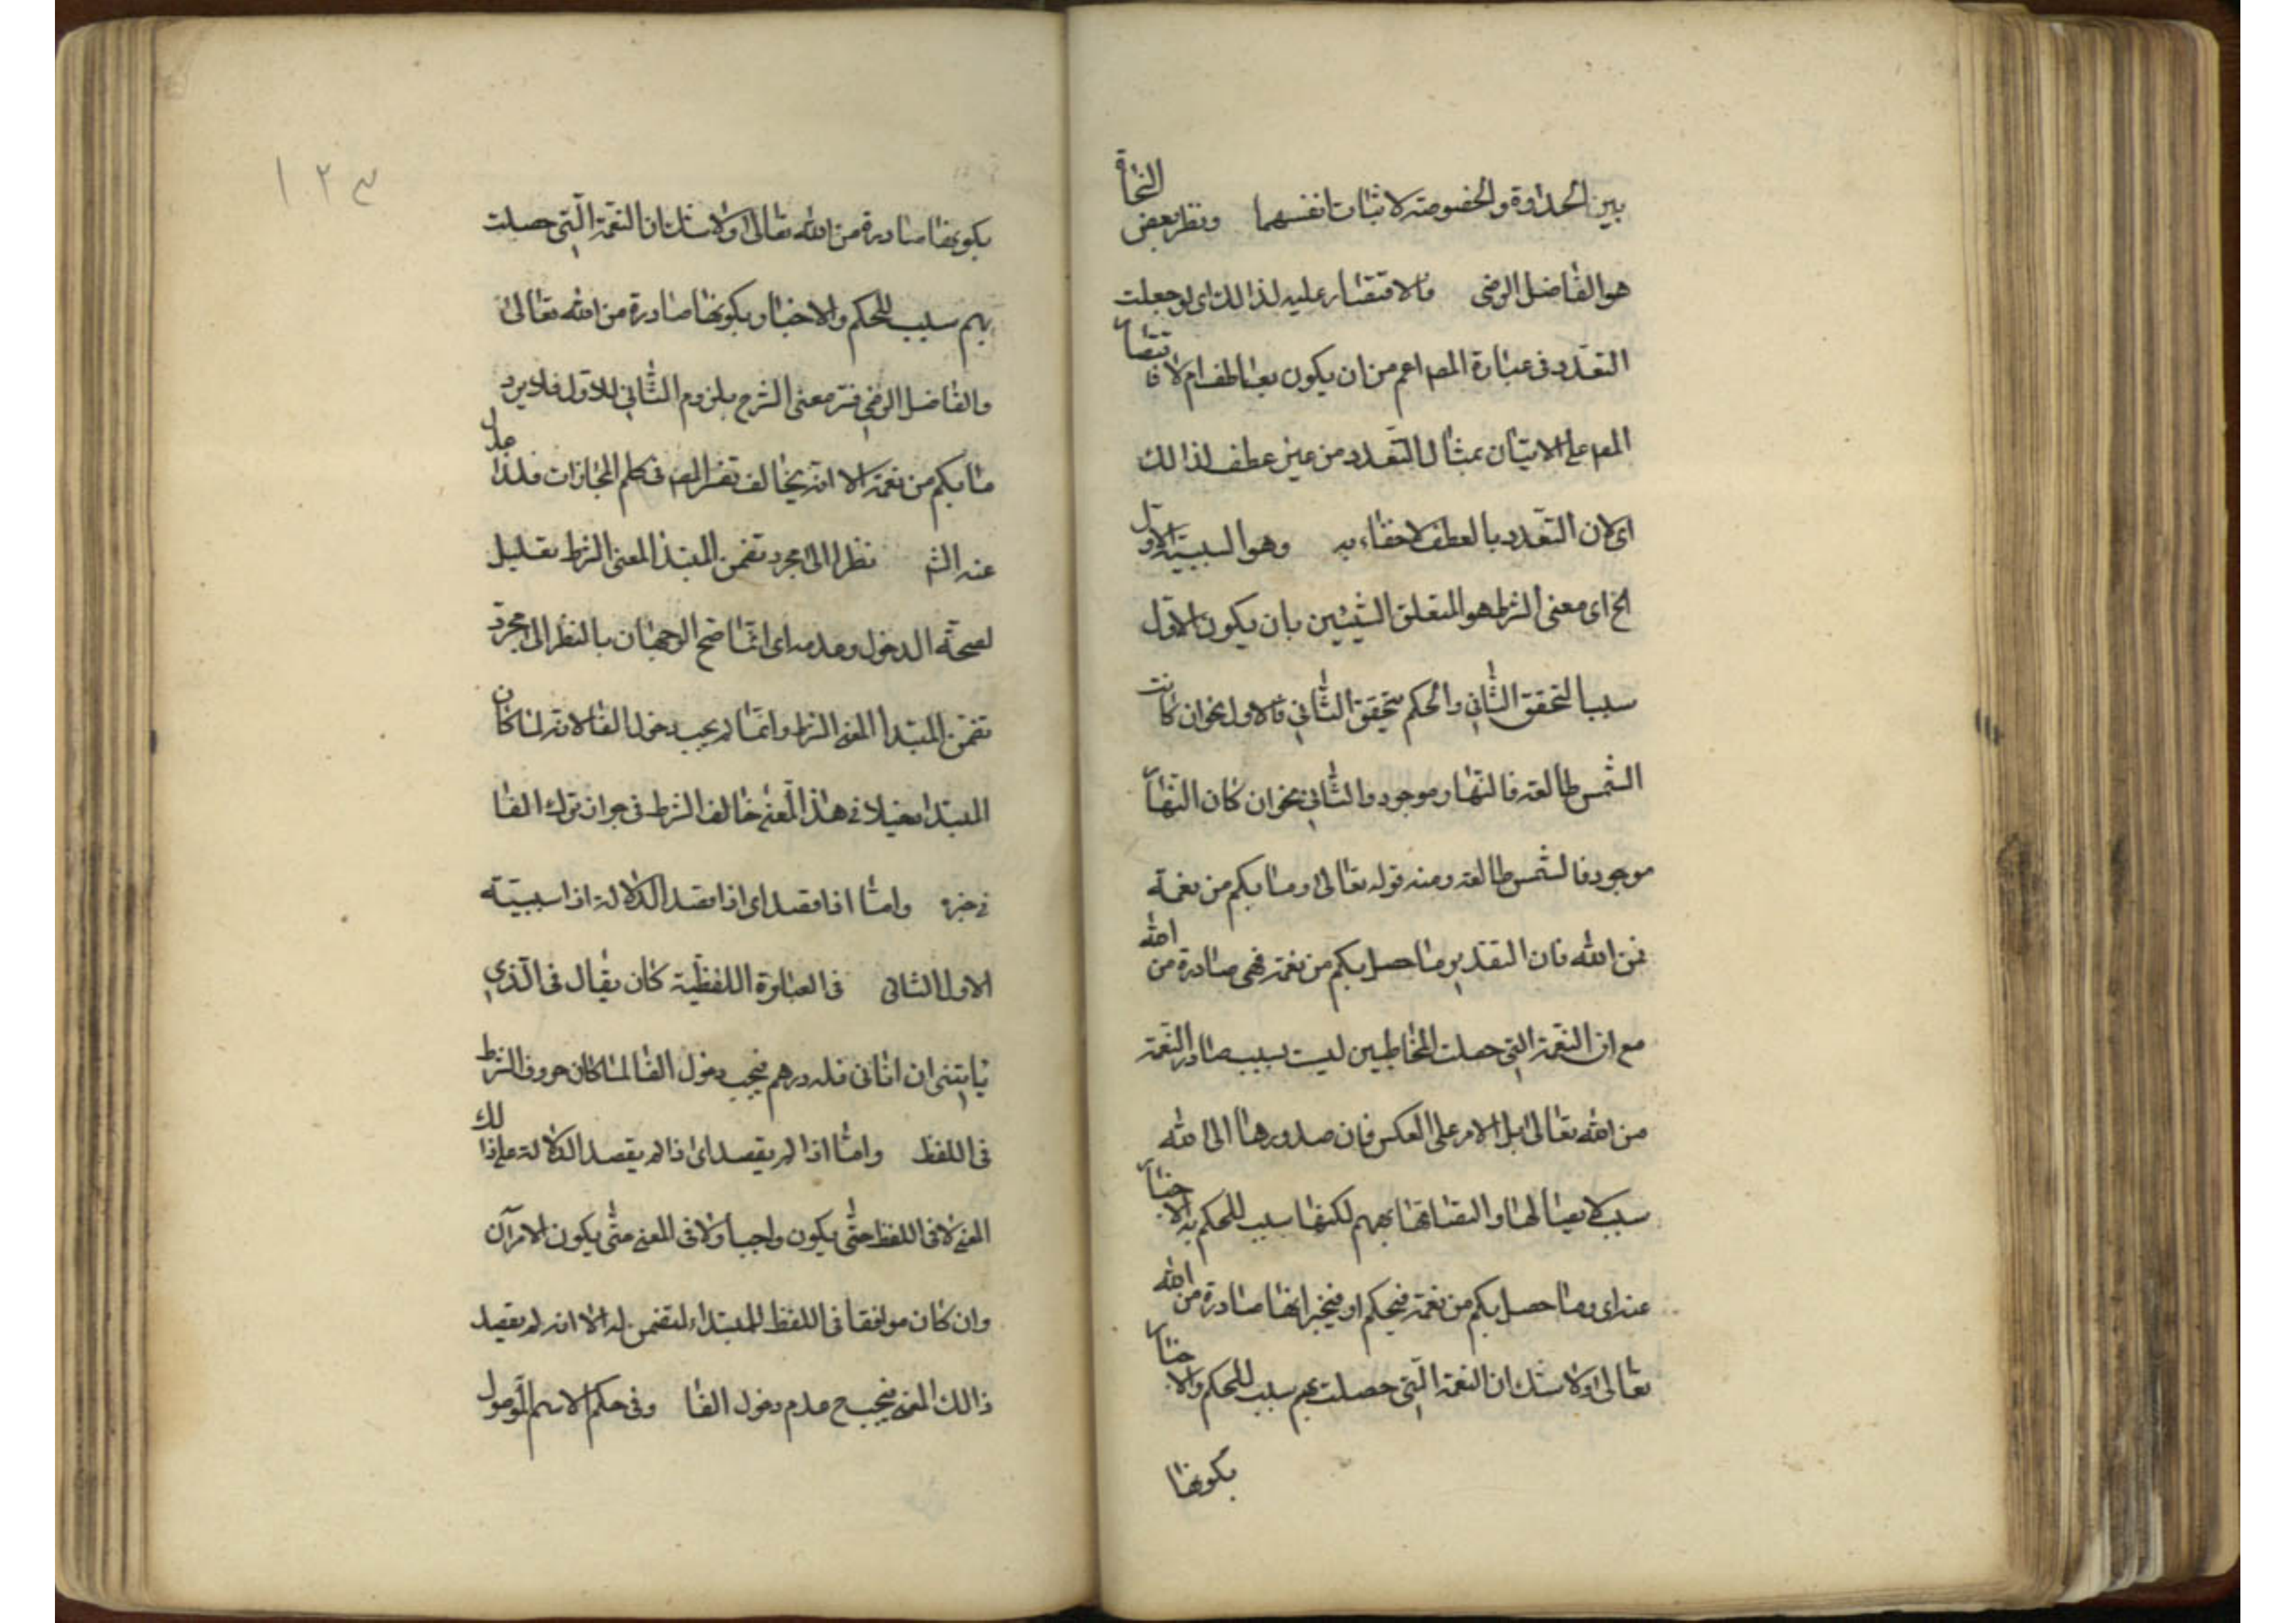 بين الحلاوة والحموضة لا ثبات انفسهما ونظر بعض النحاة
هو الفاضل الرضى فالاقتصار عليه لذالك اى لو جعلت
التعدد فى عبارة المص اعم من ان يكون بعاطف ام لا فاقتصار
المص على الاتيان بمثال التعدد من غير عطف لذالك
اى لان التعدد بالعطف لا خفاء به وهو السببية الاول
الخ اى معنى الشرط هو المتعلق الشيئين بان يكون الاول
سببا لتحقق الثانى والحكم بتحقق الثانى فالاول نحو ان كانت
الشمس طالعة فالنهار موجود والثانى نحو ان كان النهار
موجود فالشمس طالعة ومنه قوله تعالى وما بكم من نعمة
فمن الله فان التقدير ما حصل بكم من نعمة فهى صادرة من الله
مع ان النعمة التى حصلت للمخاطبين ليست بسبب صادر النعمة
من الله تعالى بل الامر على العكس فان صدورها الى الله
سبب لايصالها والتصاقها بهم لكنها سبب للحكم به الاخبار
عنه اى وما حصل بكم من نعمة فيحكم او فيخبر انها صادرة من الله
تعالى ولا شك ان النعمة التى حصلت بهم سبب للحكم والاخبار
بكونها
١٢٣
بكونها صادرة من الله تعالى ولا شك ان النعمة التى حصلت
بهم سبب للحكم والاخبار بكونها صادرة من الله تعالى
والفاضل الرضى فسر معنى الشرح بلزوم الثانى للاول فلا يرد
ما بكم من نعمة الا انه يخالف تفسر المص فى كلم المجازات فلذا عدل
عنه الش نظرا الى مجرد تضمن المبتدا المعنى الشرط تعليل
لصحة الدخول وعدمه اى انما صح الوجهان بالنظر الى مجرد
تضمن المبتدا المعنى الشرط وانما لم يجب دخول الفا لانه لما كان
المبتدا دخيلا فى هذا المعنى خالف الشرط فى جواز ترك الفا
فى خبره واما اذا قصد اى اذا قصد الدلالة اذا سببية
الاول الثانى فى العبارة اللفظية كان يقال فى الذى
يأتينى ان اتانى فله درهم فيجب دخول الفا لما كان حروف الشرط
فى اللفظ واما اذا لم يقصد اى اذا لم يقصد الدلالة على ذالك
المعنى لا فى اللفظ حتى يكون واجبا ولا فى المعنى حتى يكون الامران
وان كان موافقا فى اللفظ للمبتداء لتضمن له الا انه لم يقصد
ذالك المعنى فيجب ح عدم دخول الفا وفى حكم الاسم الموصول